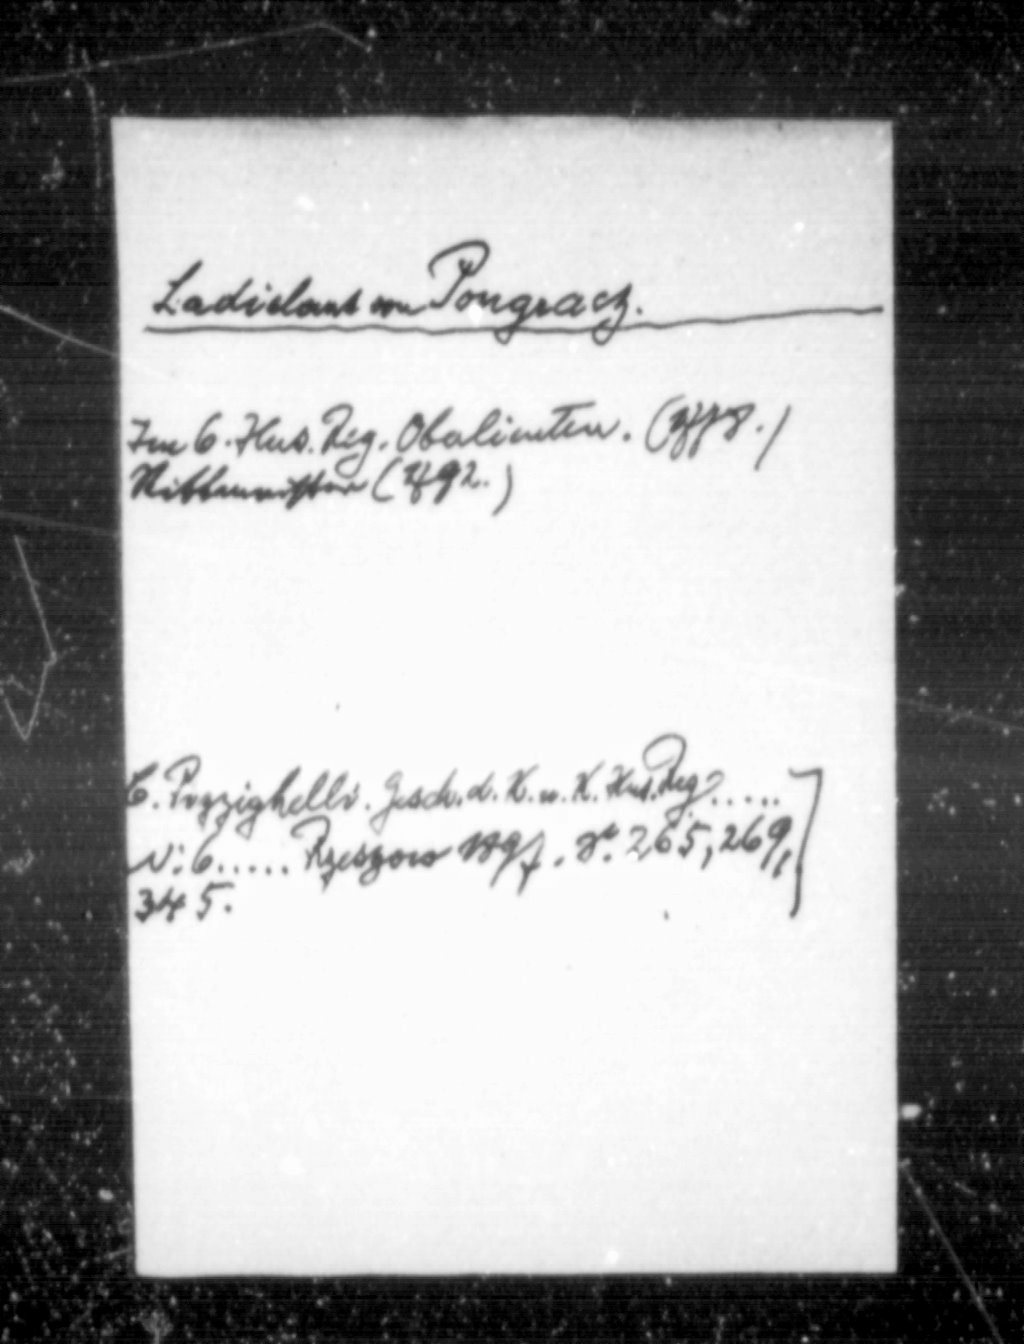 Ladislaus von Pongracz.
Im 6. Hus. Reg. Oberlieuten. (1778.)
Rittmeister (1792.)
C. Pizzighelli. Gesch. d. K. u. K. Hus. Reg.....
N: 6..... Rzeszow 1897. S. 265, 269,
345.